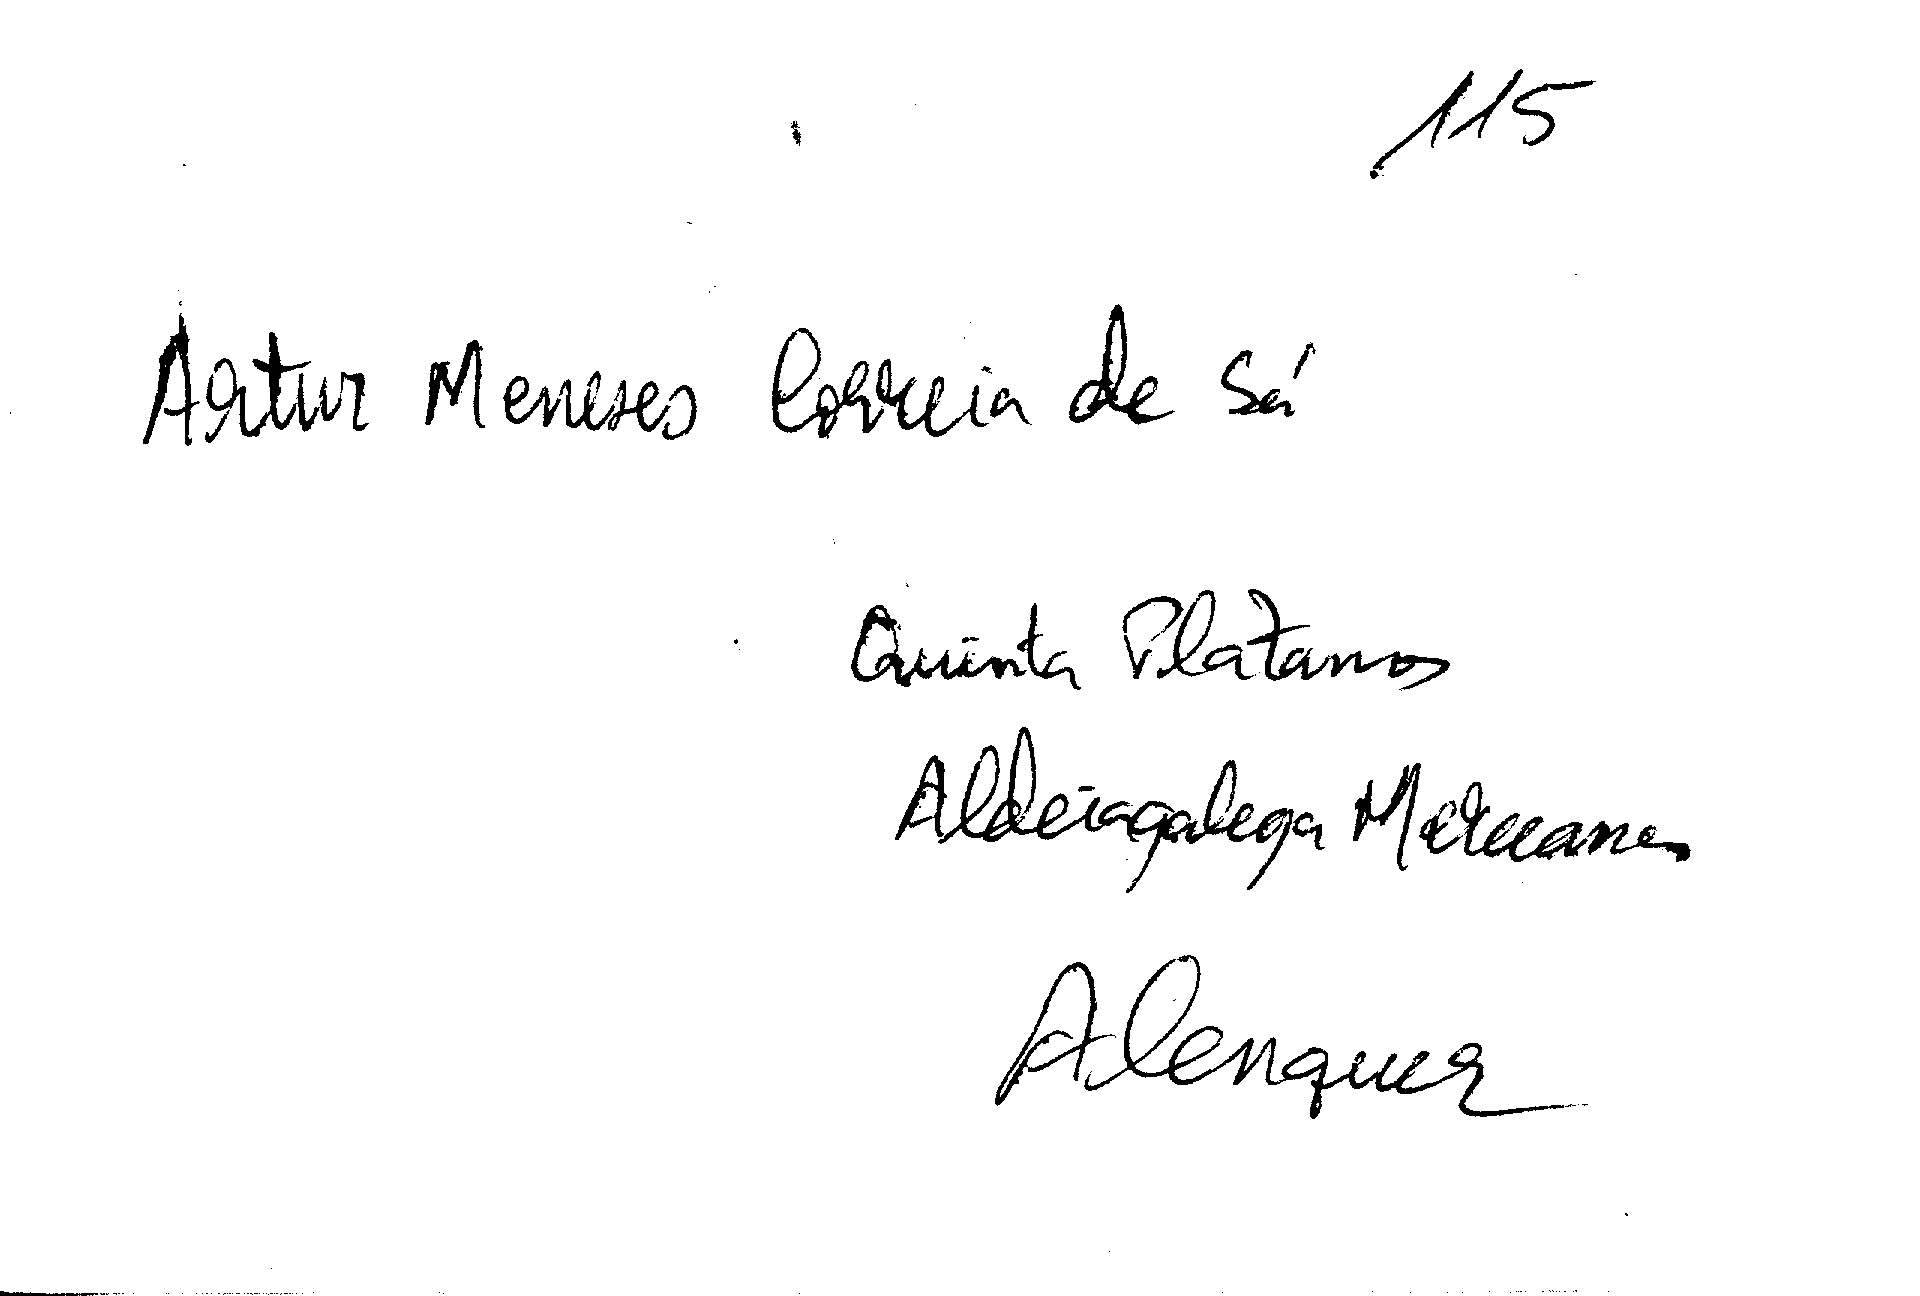 115
Artur Meneses Correia de Sá
Quinta Platanos
Aldeiagalega Merceana
Alenquer